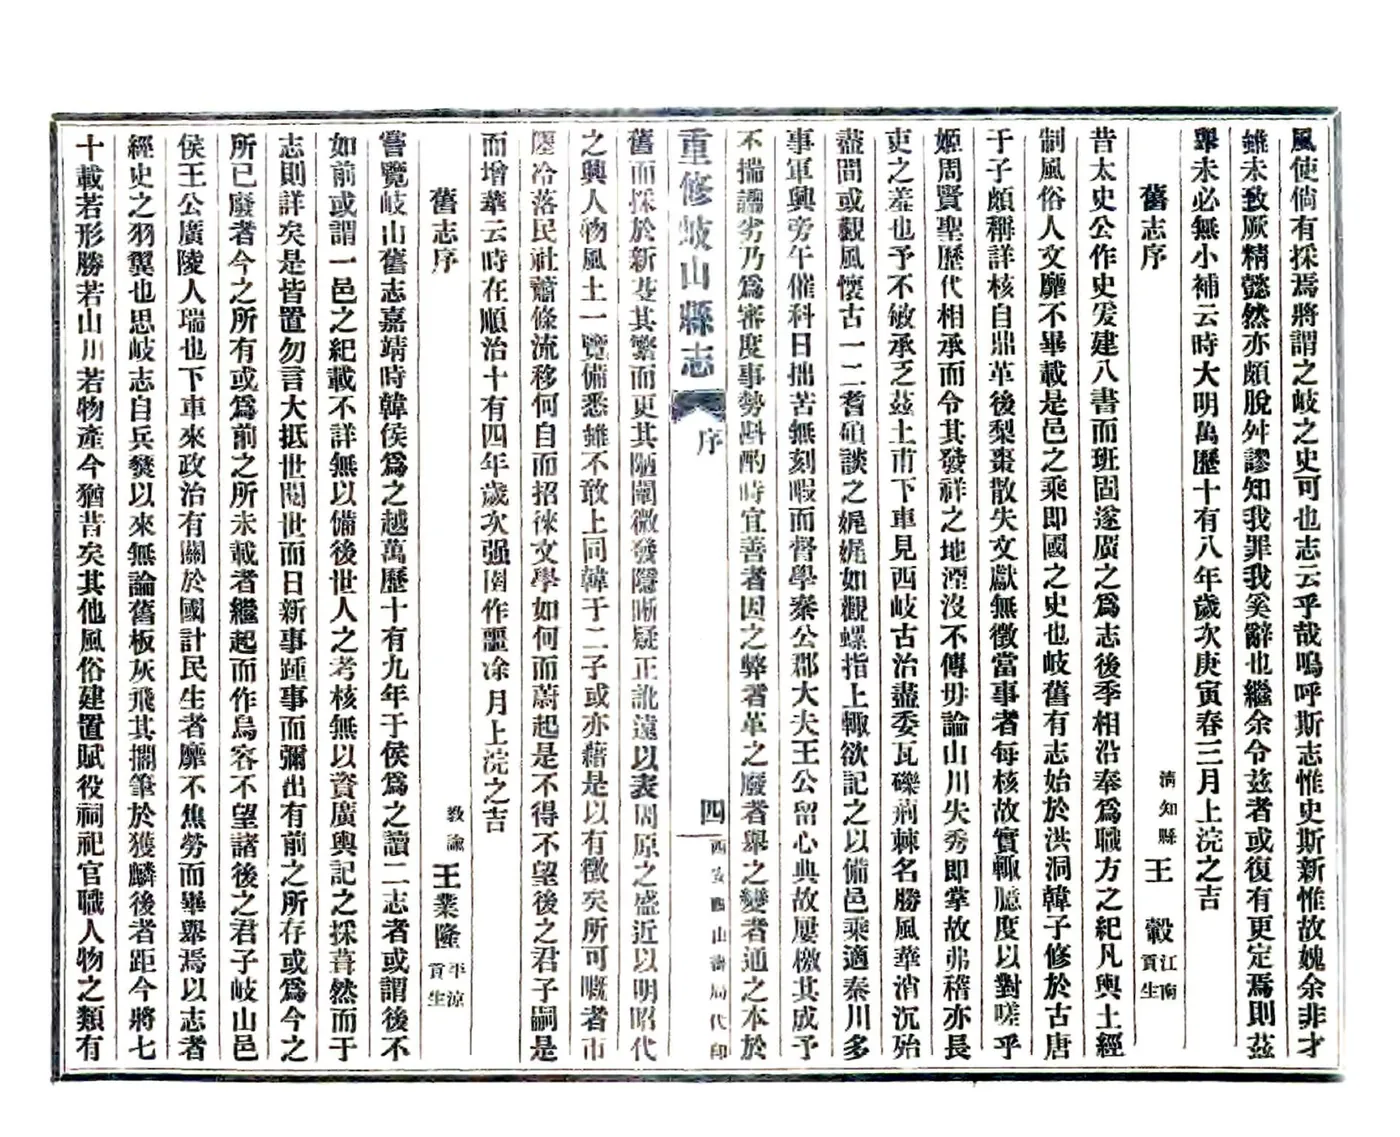 風使倘有採焉將謂之岐之史可也志云乎哉嗚呼斯志惟史斯新惟故媿余非才
雖未敢厥精懿然亦頗脫舛謬知我罪我奚辭也繼余令茲者或復有更定焉則茲
舉未必無小補云時大明萬歷十有八年歲次庚寅春三月上浣之吉
舊志序
清知縣王 轂江南貢生
昔太史公作史爰建八書而班固遂廣之爲志後季相沿奉爲職方之紀凡輿土經
制風俗人文靡不畢載是邑之乘即國之史也岐舊有志始於洪洞韓子修於古唐
于子頗稱詳核自鼎革後梨棗散失文獻無徵當事者每核故實輒臆度以對嗟乎
姬周賢聖歷代相承而令其發祥之地湮沒不傳毋論山川失秀即掌故弗稽亦長
吏之羞也予不敏承乏茲土甫下車見西岐古治盡委瓦礫荊棘名勝風華消沉殆
盡間或觀風懷古一二耆碩談之娓娓如觀螺指上輒欲記之以備邑乘適秦川多
事軍興旁午催科日拙苦無刻暇而督學秦公郡大夫王公留心典故屢檄其成予
不揣譾劣乃爲審度事勢斟酌時宜善者因之弊者革之廢者舉之變者通之本於
重修岐山縣志
序
四
西安酉山書局代印
舊而採於新芟其繁而更其陋闡微發隱晰疑正訛遠以表周原之盛近以明昭代
之興人物風土一覽備悉雖不敢上同韓于二子或亦藉是以有徵矣所可嘅者市
廛冷落民社蕭條流移何自而招徠文學如何而蔚起是不得不望後之君子嗣是
而增華云時在順治十有四年歲次强圉作噩凃月上浣之吉
舊志序
教諭王業隆平涼貢生
嘗覽岐山舊志嘉靖時韓侯爲之越萬歷十有九年于侯爲之讀二志者或謂後不
如前或謂一邑之紀載不詳無以備後世人之考核無以資廣輿記之採葺然而于
志則詳矣是皆置勿言大抵世閱世而日新事踵事而彌出有前之所存或爲今之
所已廢者今之所有或爲前之所未載者繼起而作烏容不望諸後之君子岐山邑
侯王公廣陵人瑞也下車來政治有關於國計民生者靡不焦勞而畢舉焉以志者
經史之羽翼也思岐志自兵燹以來無論舊板灰飛其擱筆於獲麟後者距今將七
十載若形勝若山川若物產今猶昔矣其他風俗建置賦役祠祀官職人物之類有